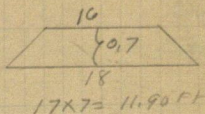 16
0.7
18
17x7= 11.90 Ft